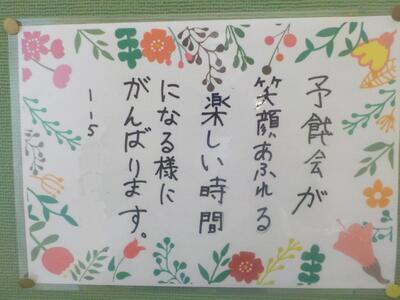 予餞会が
笑顔あふれる
楽しい時間
になる様に
がんばります。
1-5